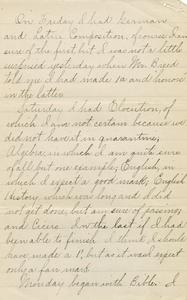 On Friday I had German
and Latin Composition, of course I am
sure of the first but I was not a little
surprised yesterday when Mr. Breed
told me I had made 1a and honors
in the latter.
Saturday I had Elocution, of
which I am not certain because we
did not have it in quarantine,
Algebra, in which I am quite sure
of all but one example; English, in
which I expect a good mark; English
History, which was long and I did
not get done, but am sure of passing,
and Cicero. In the last if I had
been able to finish I think I should
have made a 1, but as it was I expect
only a fair mark.
Monday began with Bible. I